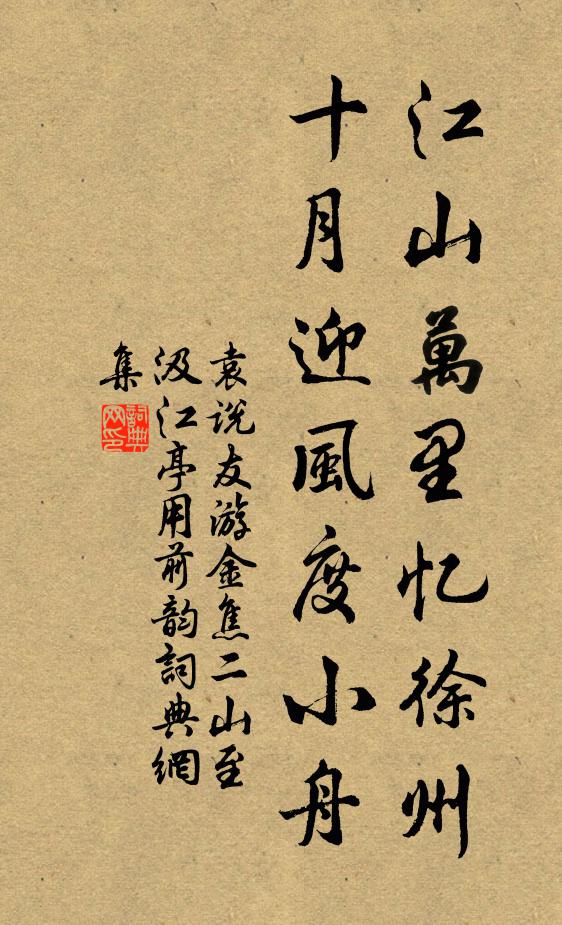 江山萬里忆徐州
十月迎風度小舟
袁说友游金焦二山至
汲江亭用前韵詞典網
集
詞典网印